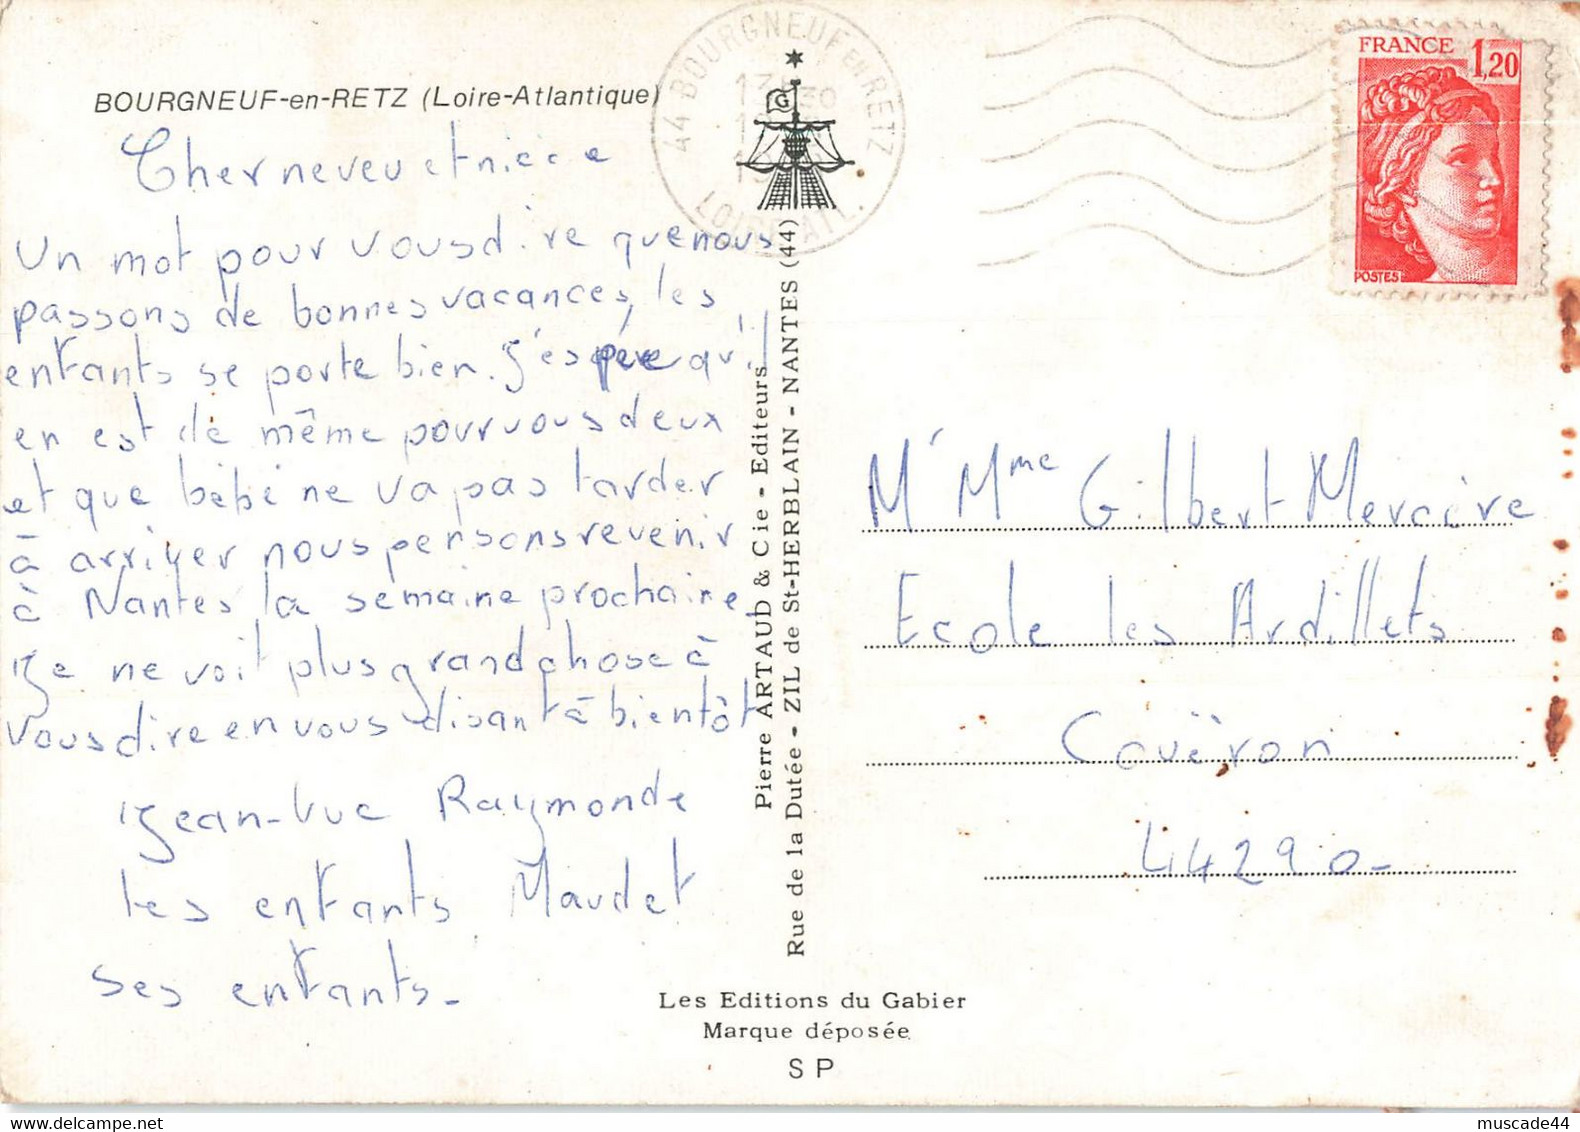 BOURGNEUF-en-RETZ (Loire-Atlantique)
Cher neveu et niece
Un mot pour vous dire que nous
passons de bonnes vacances, les
enfants se porte bien. J'espére qu'il
en est de même pour vous deux
et que bébé ne va pas tarder
à arriver nous pensons revenir
à Nantes la semaine prochaine.
Je ne voit plus grand chose à
vous dire en vous disant à bientôt
Jean-Luc Raymonde
les enfants Maudet
ses enfants-
44 BOURGNEUF EN RETZ
LOIRE ATL.
G
Pierre ARTAUD & Cie - Editeurs
Rue de la Dutée - ZIL de St-HERBLAIN - NANTES (44)
Les Editions du Gabier
Marque déposée
SP
FRANCE 1,20
POSTES
Mr Mme Gilbert Mercière
Ecole les Ardillets
Couëron
44290-
muscade44